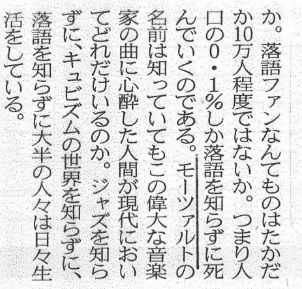 か。落語ファンなんてものはたかだ
か10万人程度ではないか。つまり人
口の0・1%しか落語を知らずに死
んでいくのである。モーツァルトの
名前は知っていてもこの偉大な音楽
家の曲に心酔した人間が現代におい
てどれだけいるのか。ジャズを知ら
ずに、キュビズムの世界を知らずに、
落語を知らずに大半の人々は日々生
活をしている。